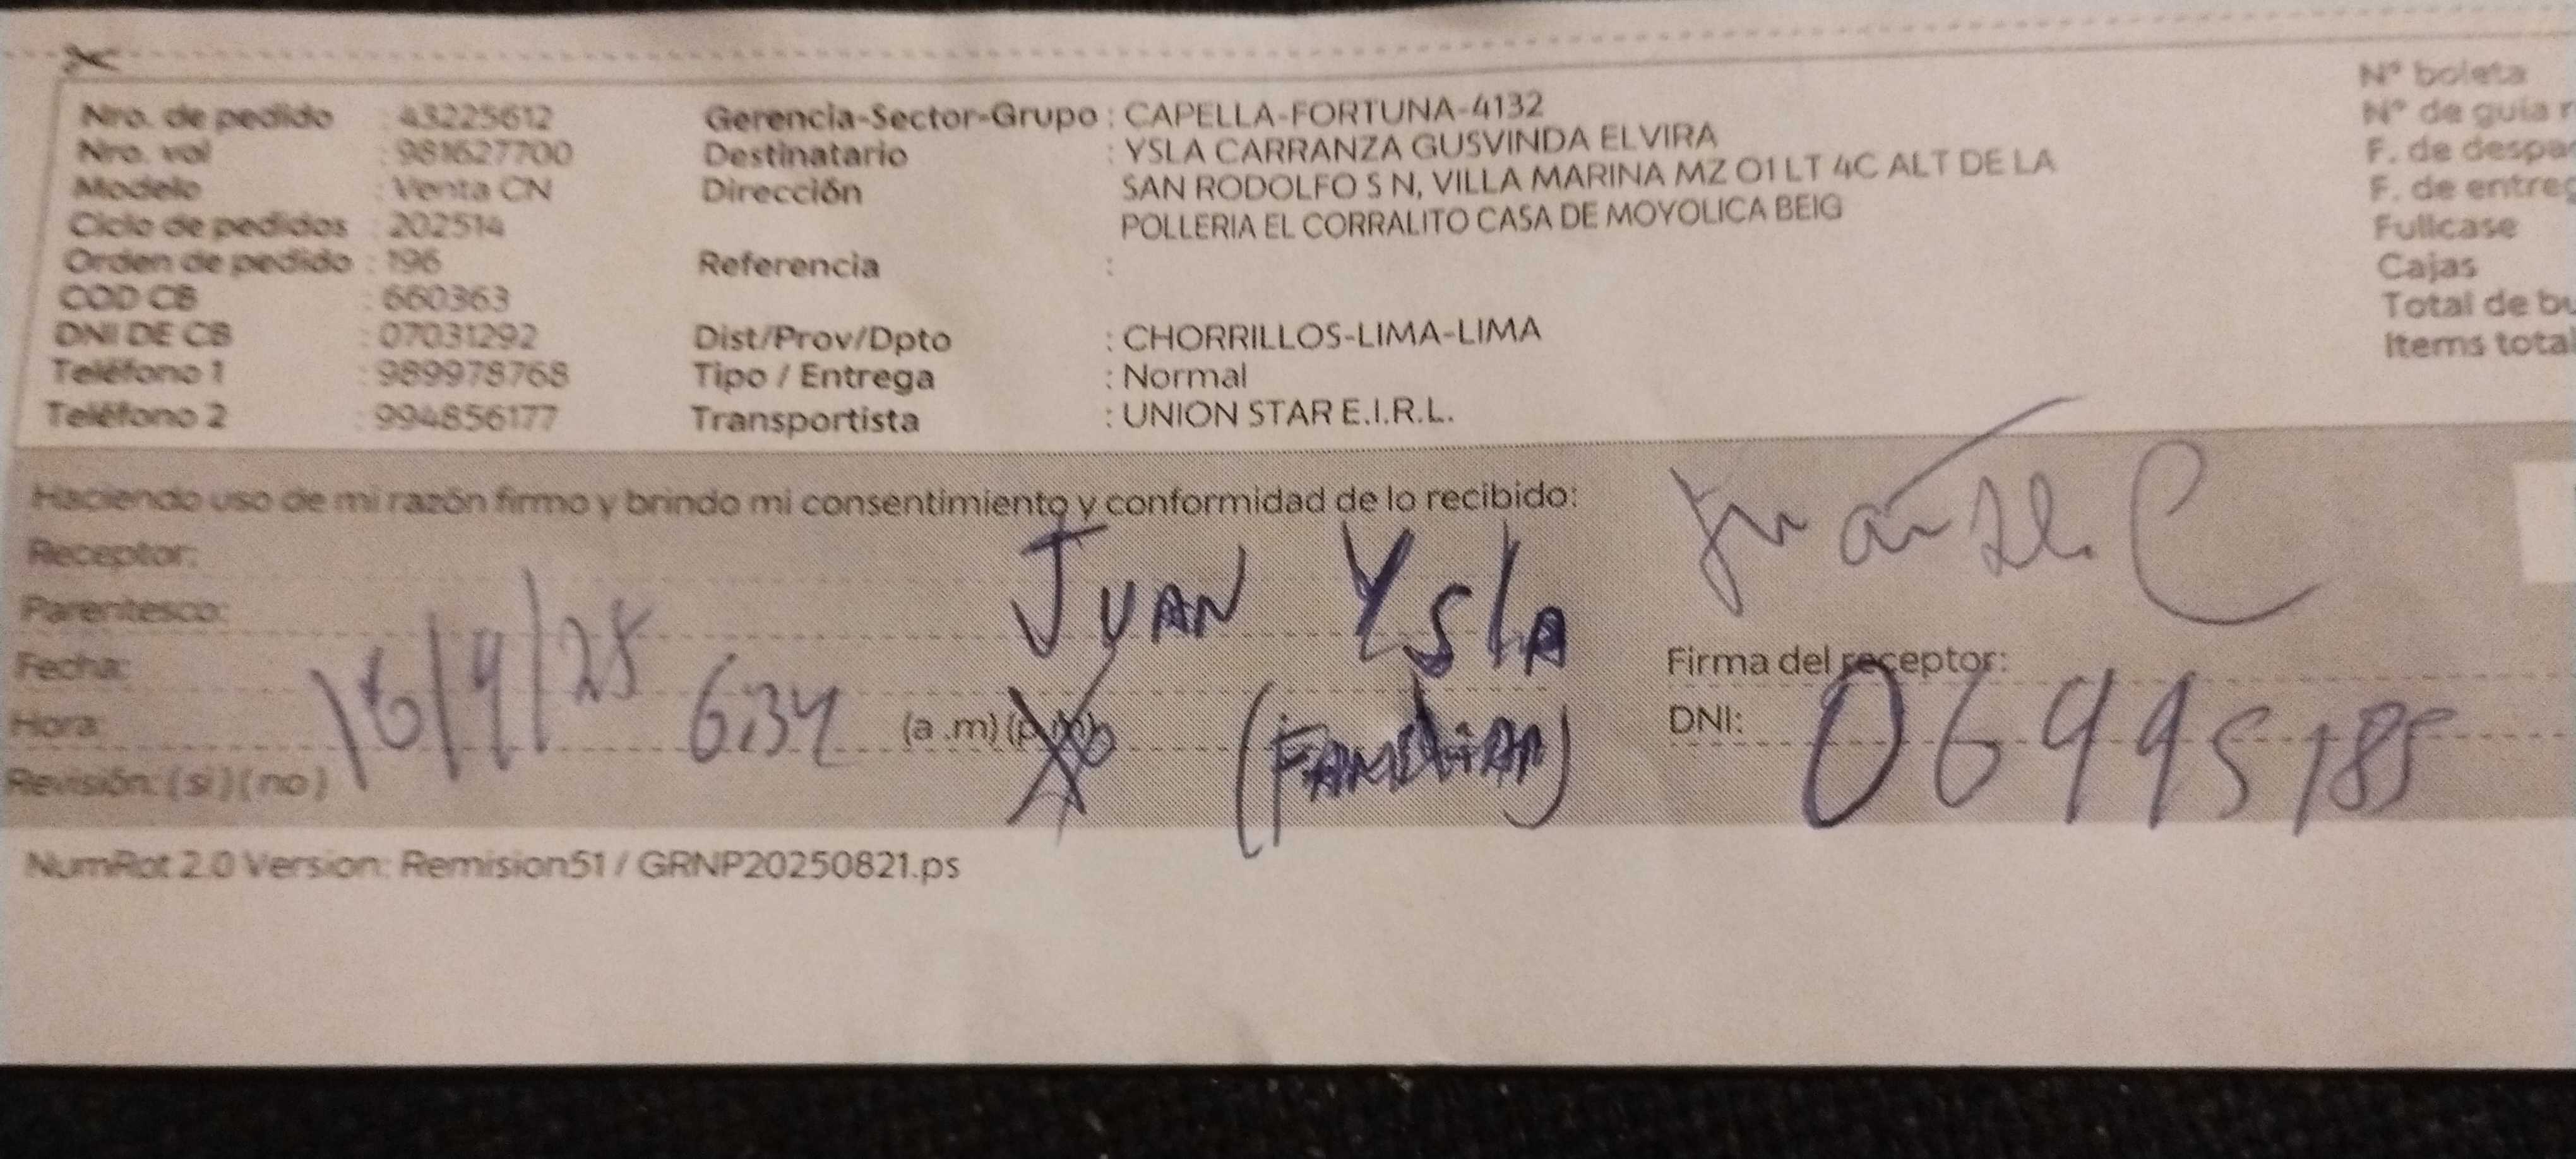 Nro. de pedido : 43225612
Nro. vol : 981627700
Modelo : Venta CN
Ciclo de pedidos : 202514
Orden de pedido : 196
COD CB : 660363
DNI DE CB : 07031292
Teléfono 1 : 989978768
Teléfono 2 : 994856177
Gerencia-Sector-Grupo : CAPELLA-FORTUNA-4132
Destinatario : YSLA CARRANZA GUSVINDA ELVIRA
Dirección : SAN RODOLFO S N, VILLA MARINA MZ O1 LT 4C ALT DE LA
POLLERIA EL CORRALITO CASA DE MOYOLICA BEIG
Referencia :
Dist/Prov/Dpto : CHORRILLOS-LIMA-LIMA
Tipo / Entrega : Normal
Transportista : UNION STAR E.I.R.L.
N° boleta
N° de guía r
F. de despa
F. de entreg
Fullcase
Cajas
Total de bu
Items total
Haciendo uso de mi razón firmo y brindo mi consentimiento y conformidad de lo recibido:
Receptor:
Parentesco:
Fecha:
Hora:
Revisión: (si) (no)
16/9/25 6:34 (a .m) (p.m)
JUAN YSLA
(FAMILIAR)
Firma del receptor:
DNI: 06995185
NumRot 2.0 Version: Remision51 / GRNP20250821.ps